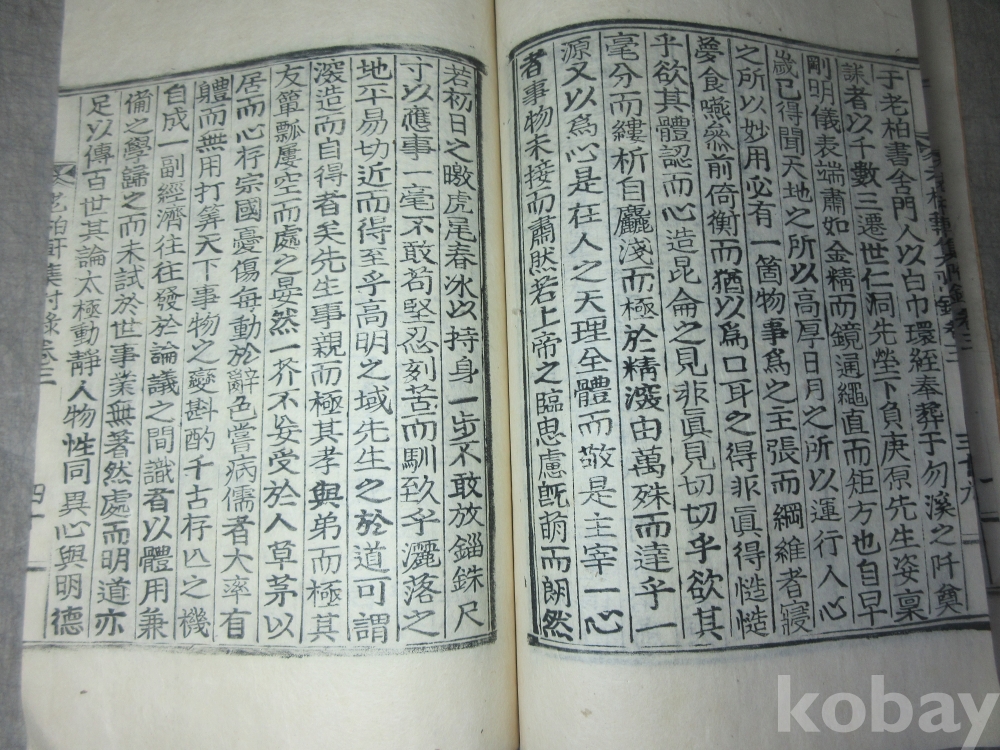 于老柏書舍門人以白巾環絰奉葬于勿溪之阡奠
誄者以千數三遷世仁洞先塋卜負庚原先生姿稟
剛明儀表端肅如金精而鏡通繩直而矩方也自早
歲已得聞天地之所以高厚日月之所以運行人心
之所以妙用必有一箇物事爲之主張而綱維者寢
夢食嚥叅前倚衡而猶以爲口耳之得非眞得慥慥
乎欲其體認而心造昆侖之見非眞見切切乎欲其
毫分而縷析自麤淺而極於精深由萬殊而達乎一
源又以爲心是在人之天理至體而敬是主宰一心
者事物未接而肅然若上帝之臨思慮旣萌而朗然
若初日之暾虎尾春冰以持身一步不敢放錙銖尺
寸以應事一毫不敢苟堅忍刻苦而馴致乎灑落之
地平易切近而得至乎高明之域先生之於道可謂
深造而自得者矣先生事親而極其孝與弟而極其
友簞瓢屢空而處之晏然一芥不妄受於人草茅以
居而心存宗國憂傷每動於辭色嘗病儒者大率有
體而無用打筭天下事物之變斟酌千古存亡之機
自成一副經濟往往發於論議之間識者以體用兼
備之學歸之而未試於世事業無著然處而明道亦
足以傳百世其論太極動靜人物性同異心與明德
老柏軒集附錄卷三
四十
kobay